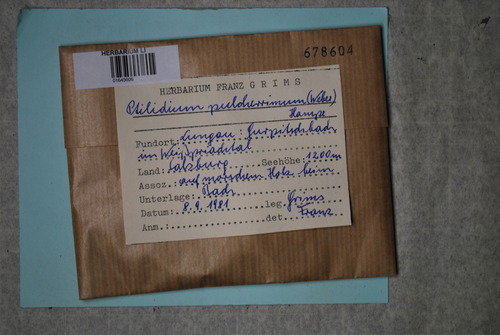 HERBARIUM LI
678604
HERBARIUM FRANZ GRIMS
Ptilidium pulcherrimum (Weber)
Hampe
Fundort: Lungau: Gurpitschbach
im Weißpriachtal
Land: Salzburg Seehöhe: 1200m
Assoz.: auf morschem Holz beim
Unterlage: Bach
Datum: 8.9.1981 leg. Grims
Anm.: det. Franz